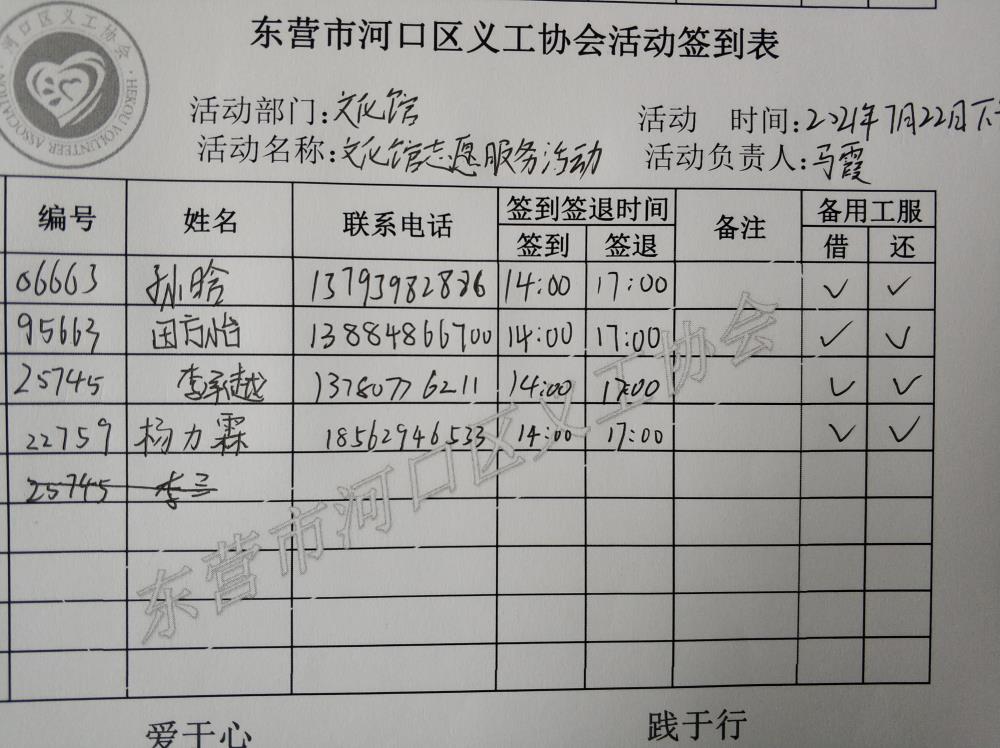 东营市河口区义工协会活动签到表
河口区义工协会
HEKOU VOLUNTEER ASSOCIATION
活动部门:文化馆 活动 时间:2021年7月22日下午
活动名称:文化馆志愿服务活动 活动负责人:马霞
编号 姓名 联系电话 签到签退时间 备注 备用工服
签到 签退 借 还
06663 孙晗 13793982876 14:00 17:00 ✓ ✓
95663 田方怡 13884866700 14:00 17:00 ✓ ✓
25745 李承越 13780776211 14:00 17:00 ✓ ✓
22759 杨力霖 18562946533 14:00 17:00 ✓ ✓
25745 李三
东营市河口区义工协会
爱于心 践于行